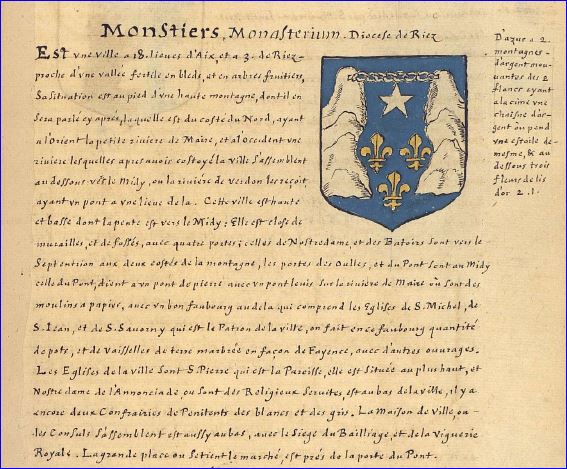 Monstiers, Monasterium. Diocese de Riez
Est vne ville a 18. lieues d'Aix, et a 3. de Riez
proche d'vne vallée fertile en bleds, et en arbres fruitiers,
Sa situation est au pied d'vne haute montagne, dont il en
sera parlé cy apres, laquelle est du costé du Nord, ayant
a l'Orient la petite riviere de Maire, et a l'Occident vne
riviere lesquelles apres avoir costoyé la ville s'assemblent
au dessous vers le Midy, ou la riviere de verdon les reçoit
ayant vn pont a vne lieue de la. Cette ville est haute
et basse dont la pente est vers le Midy; Elle est close de
murailles, et de fossés, avec quatre portes; celles de Nostre dame et des Batoirs sont vers le
Septentrion aux deux costés de la montagne, les portes des Oulles, et du Pont sont au Midy
celle du Pont, dient a vn pont de pierre avec vn pont levis sur la riviere de Maire ou sont des
moulins a papier, avec vn bon faubourg au dela qui comprend les Eglises de S. Michel, de
S. Iean, et de S. Savorny qui est le Patron de la ville, on fait en ce faubourg quantité
de pots, et de vaisselles de terre marbrée en façon de Fayence, avec d'autres ouvrages.
Les Eglises de la ville sont S. Pierre qui est la Paroisse, elle est située au plus haut, et
Nostre dame de l'Annonciade ou sont des Religieux Servites est au bas de la ville, il y a
encore deux Confrairies de Penitents des blancs et des gris. La Maison de Ville, ou
les Consuls s'assemblent est aussy au bas, avec le Siege du Bailliage, et de la Viguerie
Royale. La grande place ou se tient le marché, est prés de la porte du Pont.
D'azur a 2.
montagnes
d'argent mou
uantes des 2
flancs ayant
a la cime vne
chaisne d'ar
gent ou pend
vne estoile de
mesme, & au
dessous trois
fleurs de lis
d'or 2. 1.